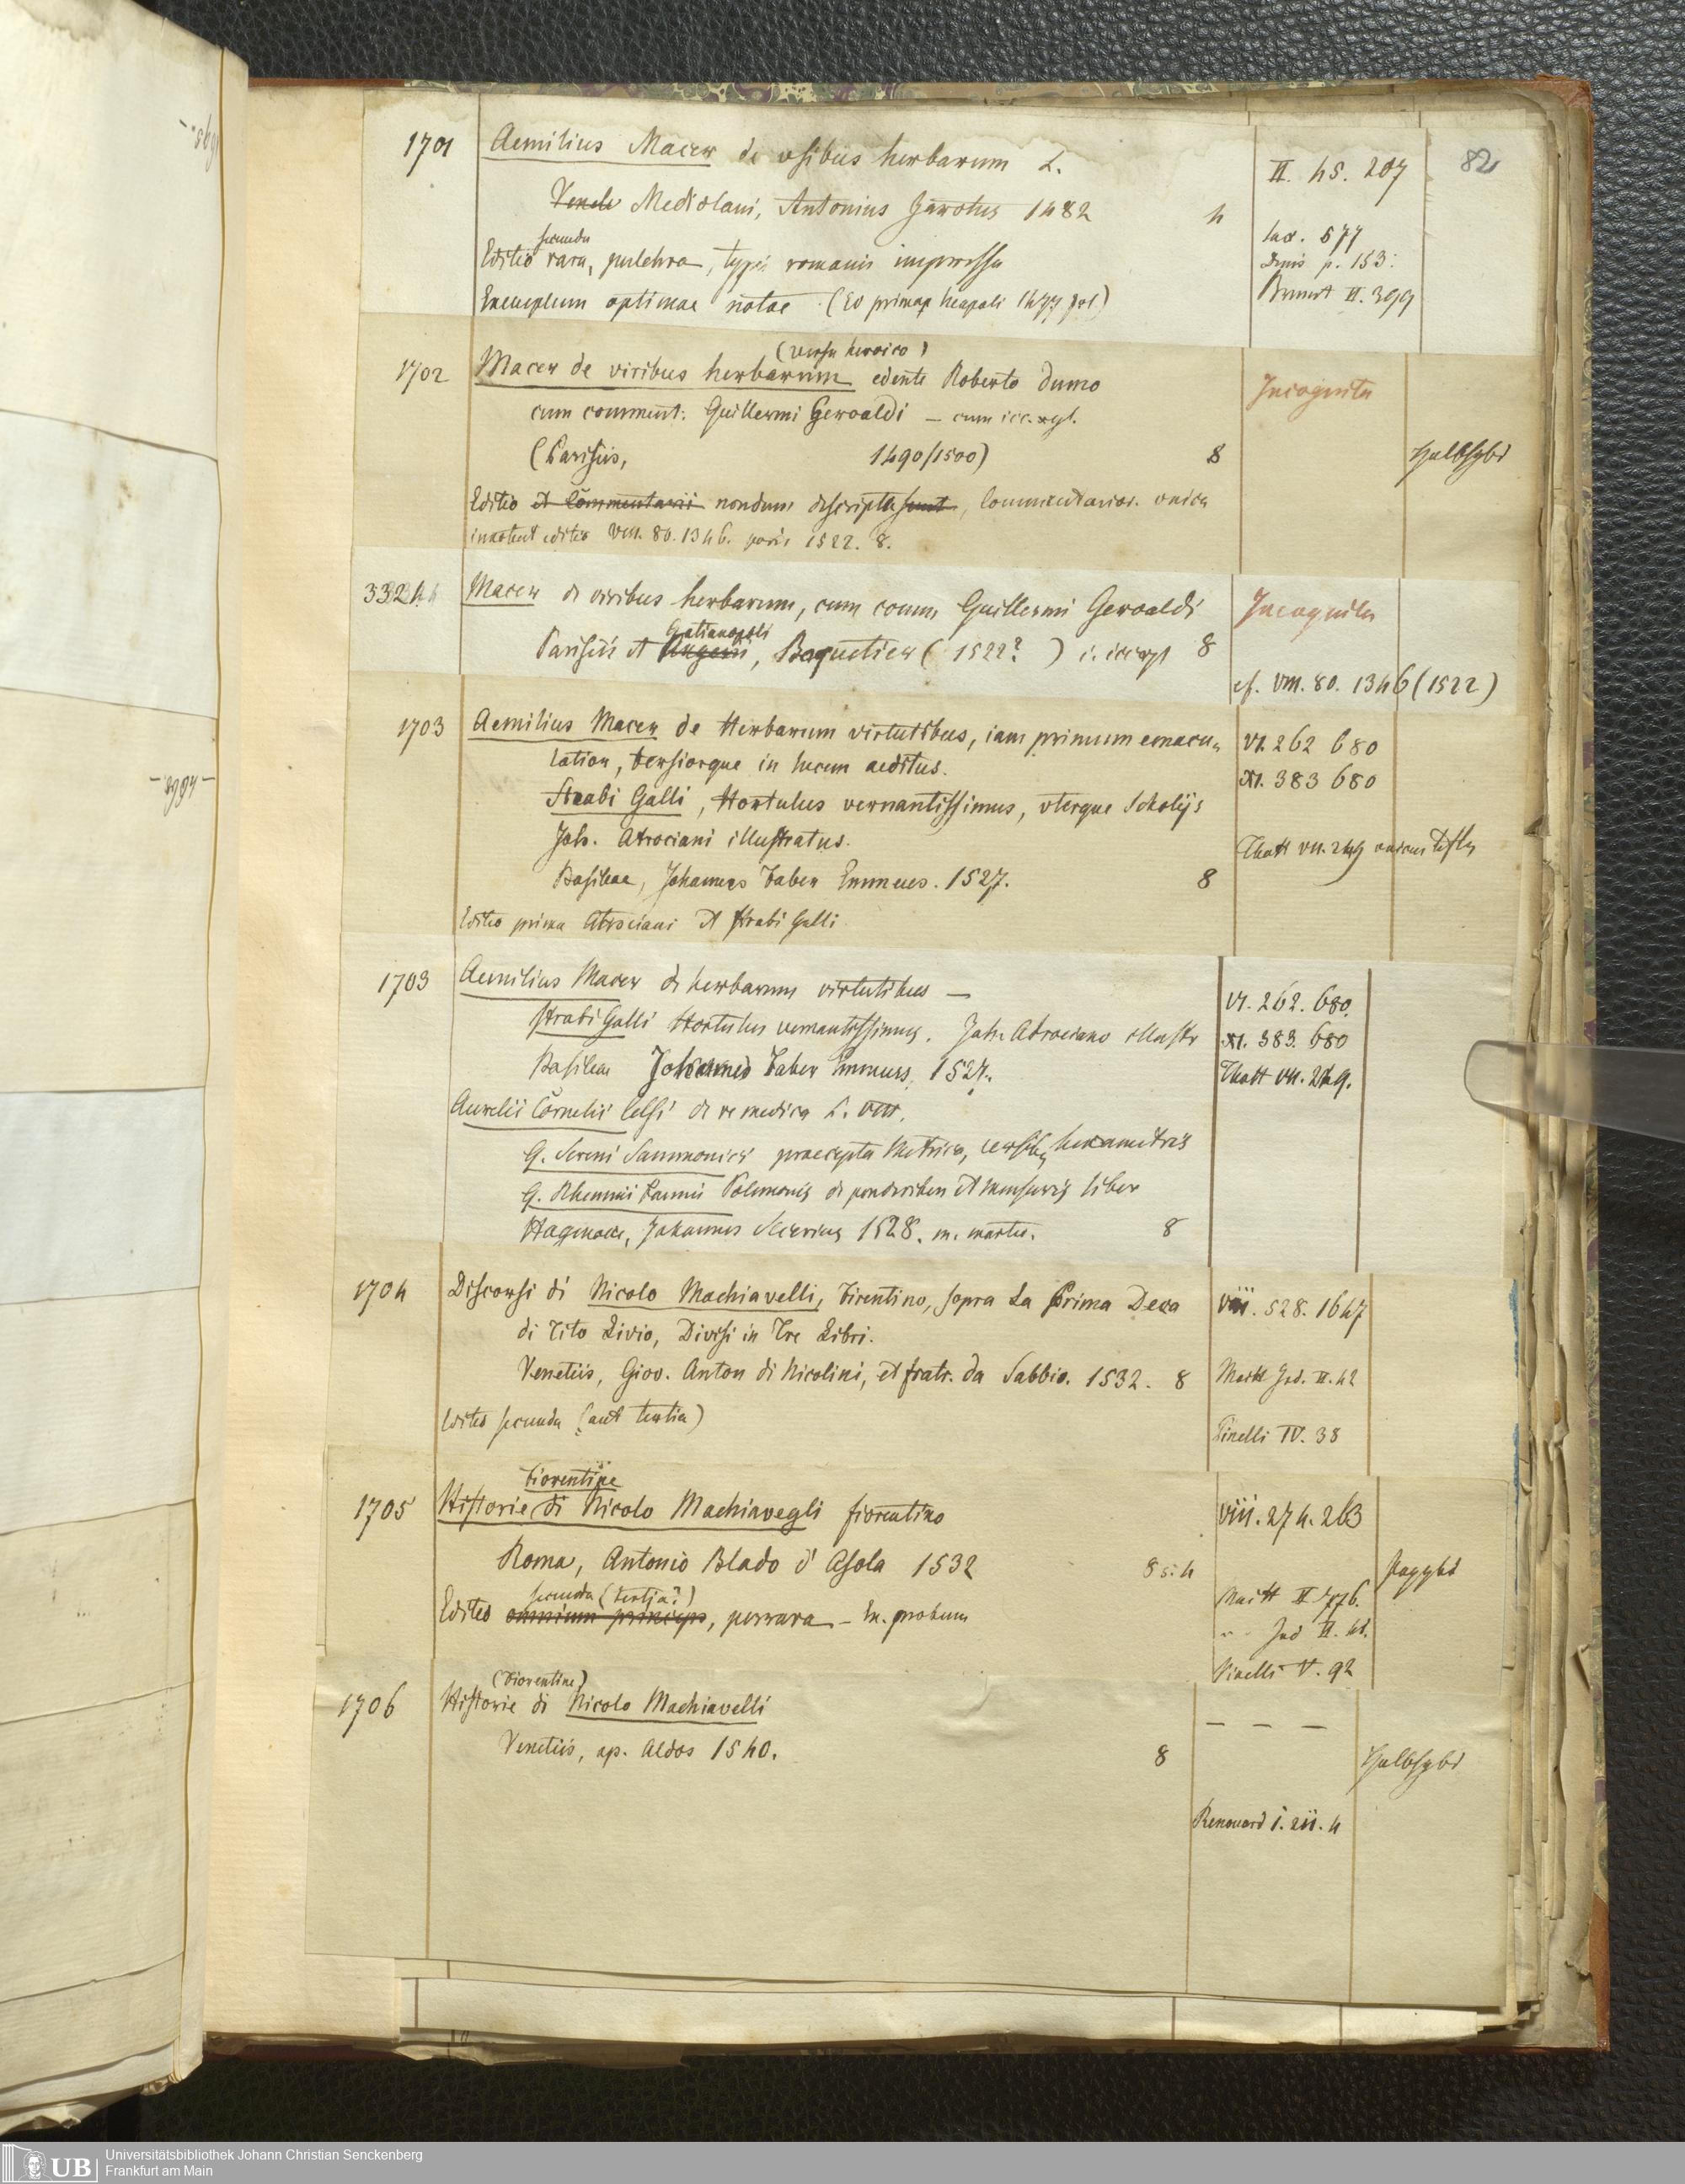 82
1701 Aemilius Macer de usibus herbarum L.
Mediolani, Antonius Zarotus 1482 4
II. 45. 207
secunda
Editio rara, pulchra, typis romanis impressa
Exemplum optimae notae
577
Denis p. 153.
Brunet II. 399
(versu heroico)
1702 Macer de viribus herbarum edente Roberto Dumo
cum comment: Guillermi Gervaldi
(Parisiis, 1490/1500) 8
Incognita
Halbfzbd
Editio et Commentarii nondum descripta sunt, Commentarior. unica
editio VIII. 80. 1346. paris 1522. 8.
33244 Macer de viribus herbarum, cum comm Guillermi Gervaldi
Gatianopoli
Parisiis et , Baquetier (1522? ) 8
Incognita
cf. VIII. 80. 1346 (1522)
1703 Aemilius Macer de Herbarum virtutibus, iam primum emacu-
latior, tersiorque in lucem aeditus.
Strabi Galli, Hortulus vernantissimus, uterque Scholijs
Joh. Atrociani illustratus.
Basileae, Johannes Faber Emmeus. 1527. 8
Editio prima Atrociani et Strabi Galli
VI. 262 680
XI. 383 680
Thott VII. 249
1703 Aemilius Macer de herbarum virtutibus —
Strabi Galli Hortulus vernantissimus. Joh. Atrociano illustr
Basileae Johannes Faber Emmeus. 1527.
Aurelii Cornelii Celsi de re medica L. VIII.
Q. Sereni Sammonici praecepta Metrica, versibus hexametris
Q. Rhemnii Fannii Palemonis de ponderibus et mensuris liber
Haganoae, Johannes Secerius 1528. m. martio. 8
VI. 262. 680.
XI. 383. 680
Thott VII. 249.
1704 Discorsi di Nicolo Machiavelli, Firentino, sopra La Prima Deca
di Tito Livio, Divisi in Tre Libri.
Venetiis, Giov. Anton di Nicolini, et fratr. da Sabbio. 1532. 8
Editio secunda (aut tertia)
VIII. 528. 1647
Maitt Ind. II. 42
Pinelli IV. 38
Fiorentine
1705 Historie di Nicolo Machiavegli fiorentino
Roma, Antonio Blado d'Asola 1532 8 s. 4
secunda (tertia?)
Editio omnium princeps, perrara – Ex. probum
VIII. 274. 263
Maitt II 776.
Ind II. 42.
Pinelli V. 92
Pappbd
(Fiorentine)
1706 Historie di Nicolo Machiavelli
Venetiis, ap. Aldos 1540. 8
— — —
Halbfzbd
Renouard I. 211. 4
UB Universitätsbibliothek Johann Christian Senckenberg
Frankfurt am Main